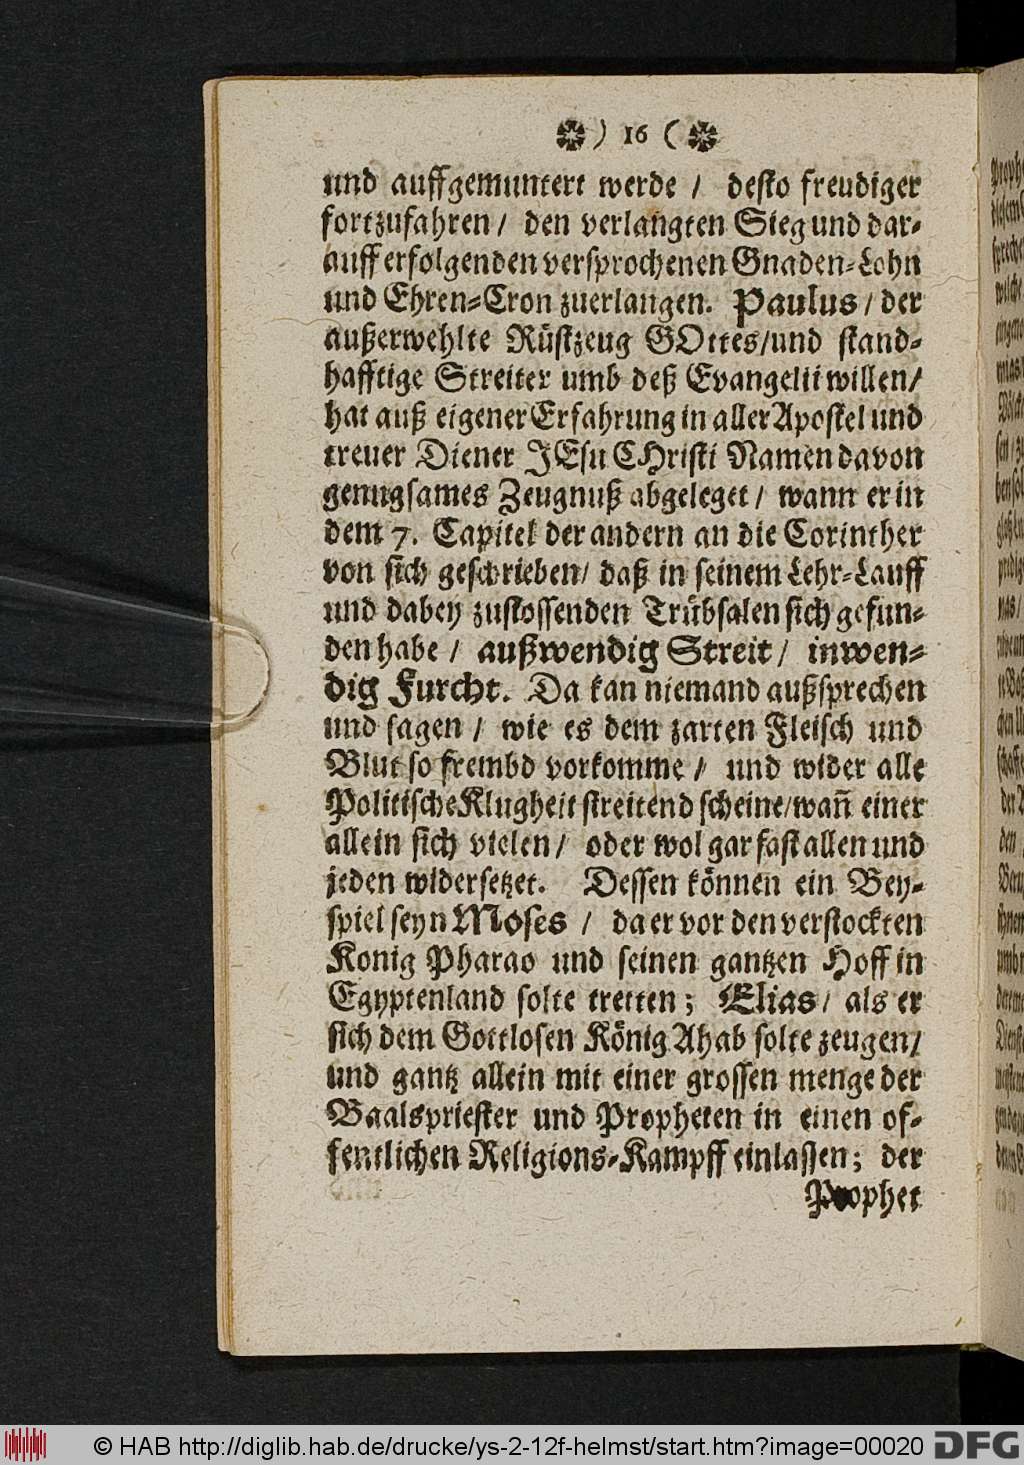 ) 16 (
und auffgemuntert werde / desto freudiger
fortzufahren / den verlangten Sieg und dar-
auff erfolgenden versprochenen Gnaden-Lohn
und Ehren-Cron zuerlangen. Paulus / der
außerwehlte Rüstzeug GOttes/und stand-
hafftige Streiter umb deß Evangelii willen/
hat auß eigener Erfahrung in aller Apostel und
treuer Diener JEsu CHristi Namen davon
genugsames Zeugnuß abgeleget / wann er in
dem 7. Capitel der andern an die Corinther
von sich geschrieben/ daß in seinem Lehr-Lauff
und dabey zustossenden Trübsalen sich gefun-
den habe / außwendig Streit / inwen-
dig Furcht. Da kan niemand außsprechen
und sagen / wie es dem zarten Fleisch und
Blut so frembd vorkomme / und wider alle
Politische Klugheit streitend scheine/wañ einer
allein sich vielen / oder wol gar fast allen und
jeden widersetzet. Dessen können ein Bey-
spiel seyn Moses / da er vor den verstockten
Konig Pharao und seinen gantzen Hoff in
Egyptenland solte tretten; Elias / als er
sich dem Gottlosen König Ahab solte zeugen/
und gantz allein mit einer grossen menge der
Baalspriester und Propheten in einen of-
fentlichen Religions-Kampff einlassen; der
Prophet
© HAB http://diglib.hab.de/drucke/ys-2-12f-helmst/start.htm?image=00020 DFG